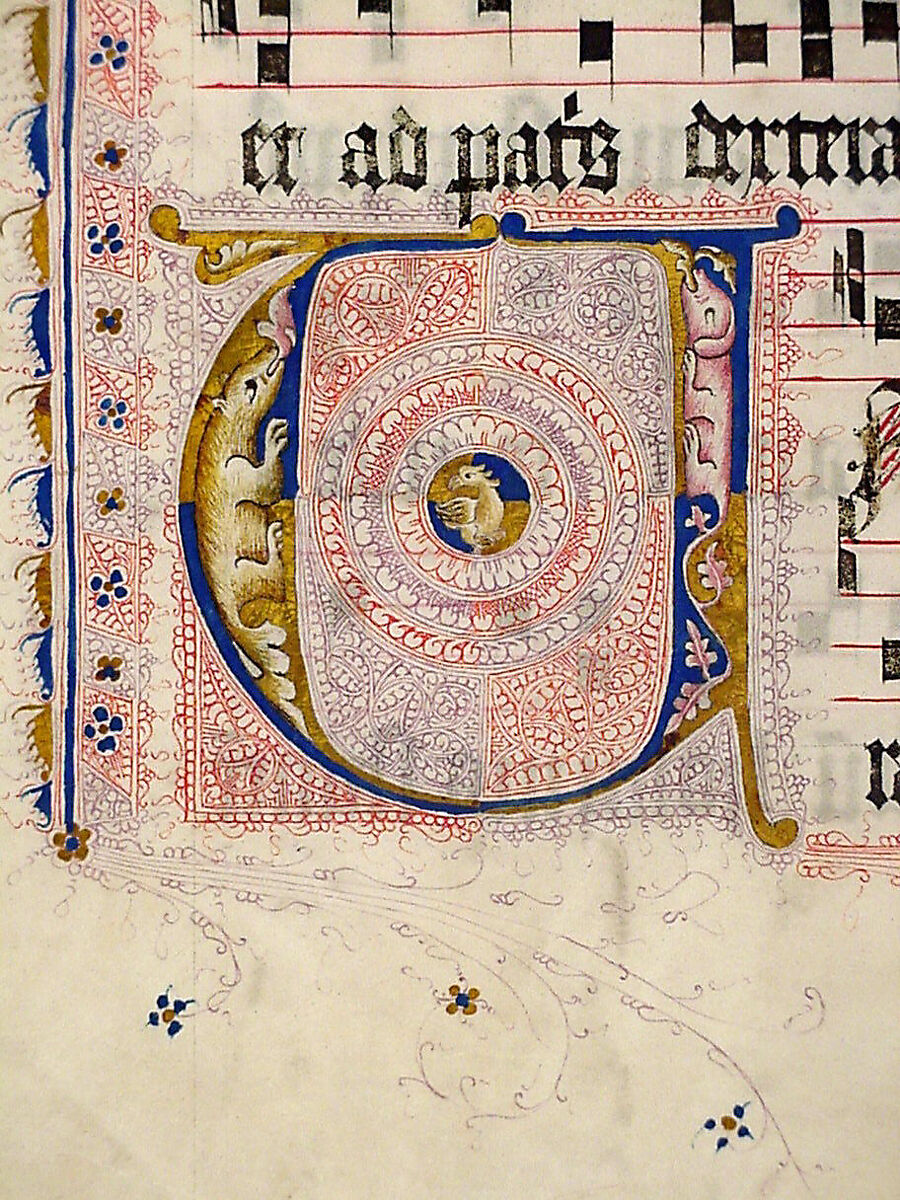 et ad pat'is dextera
U